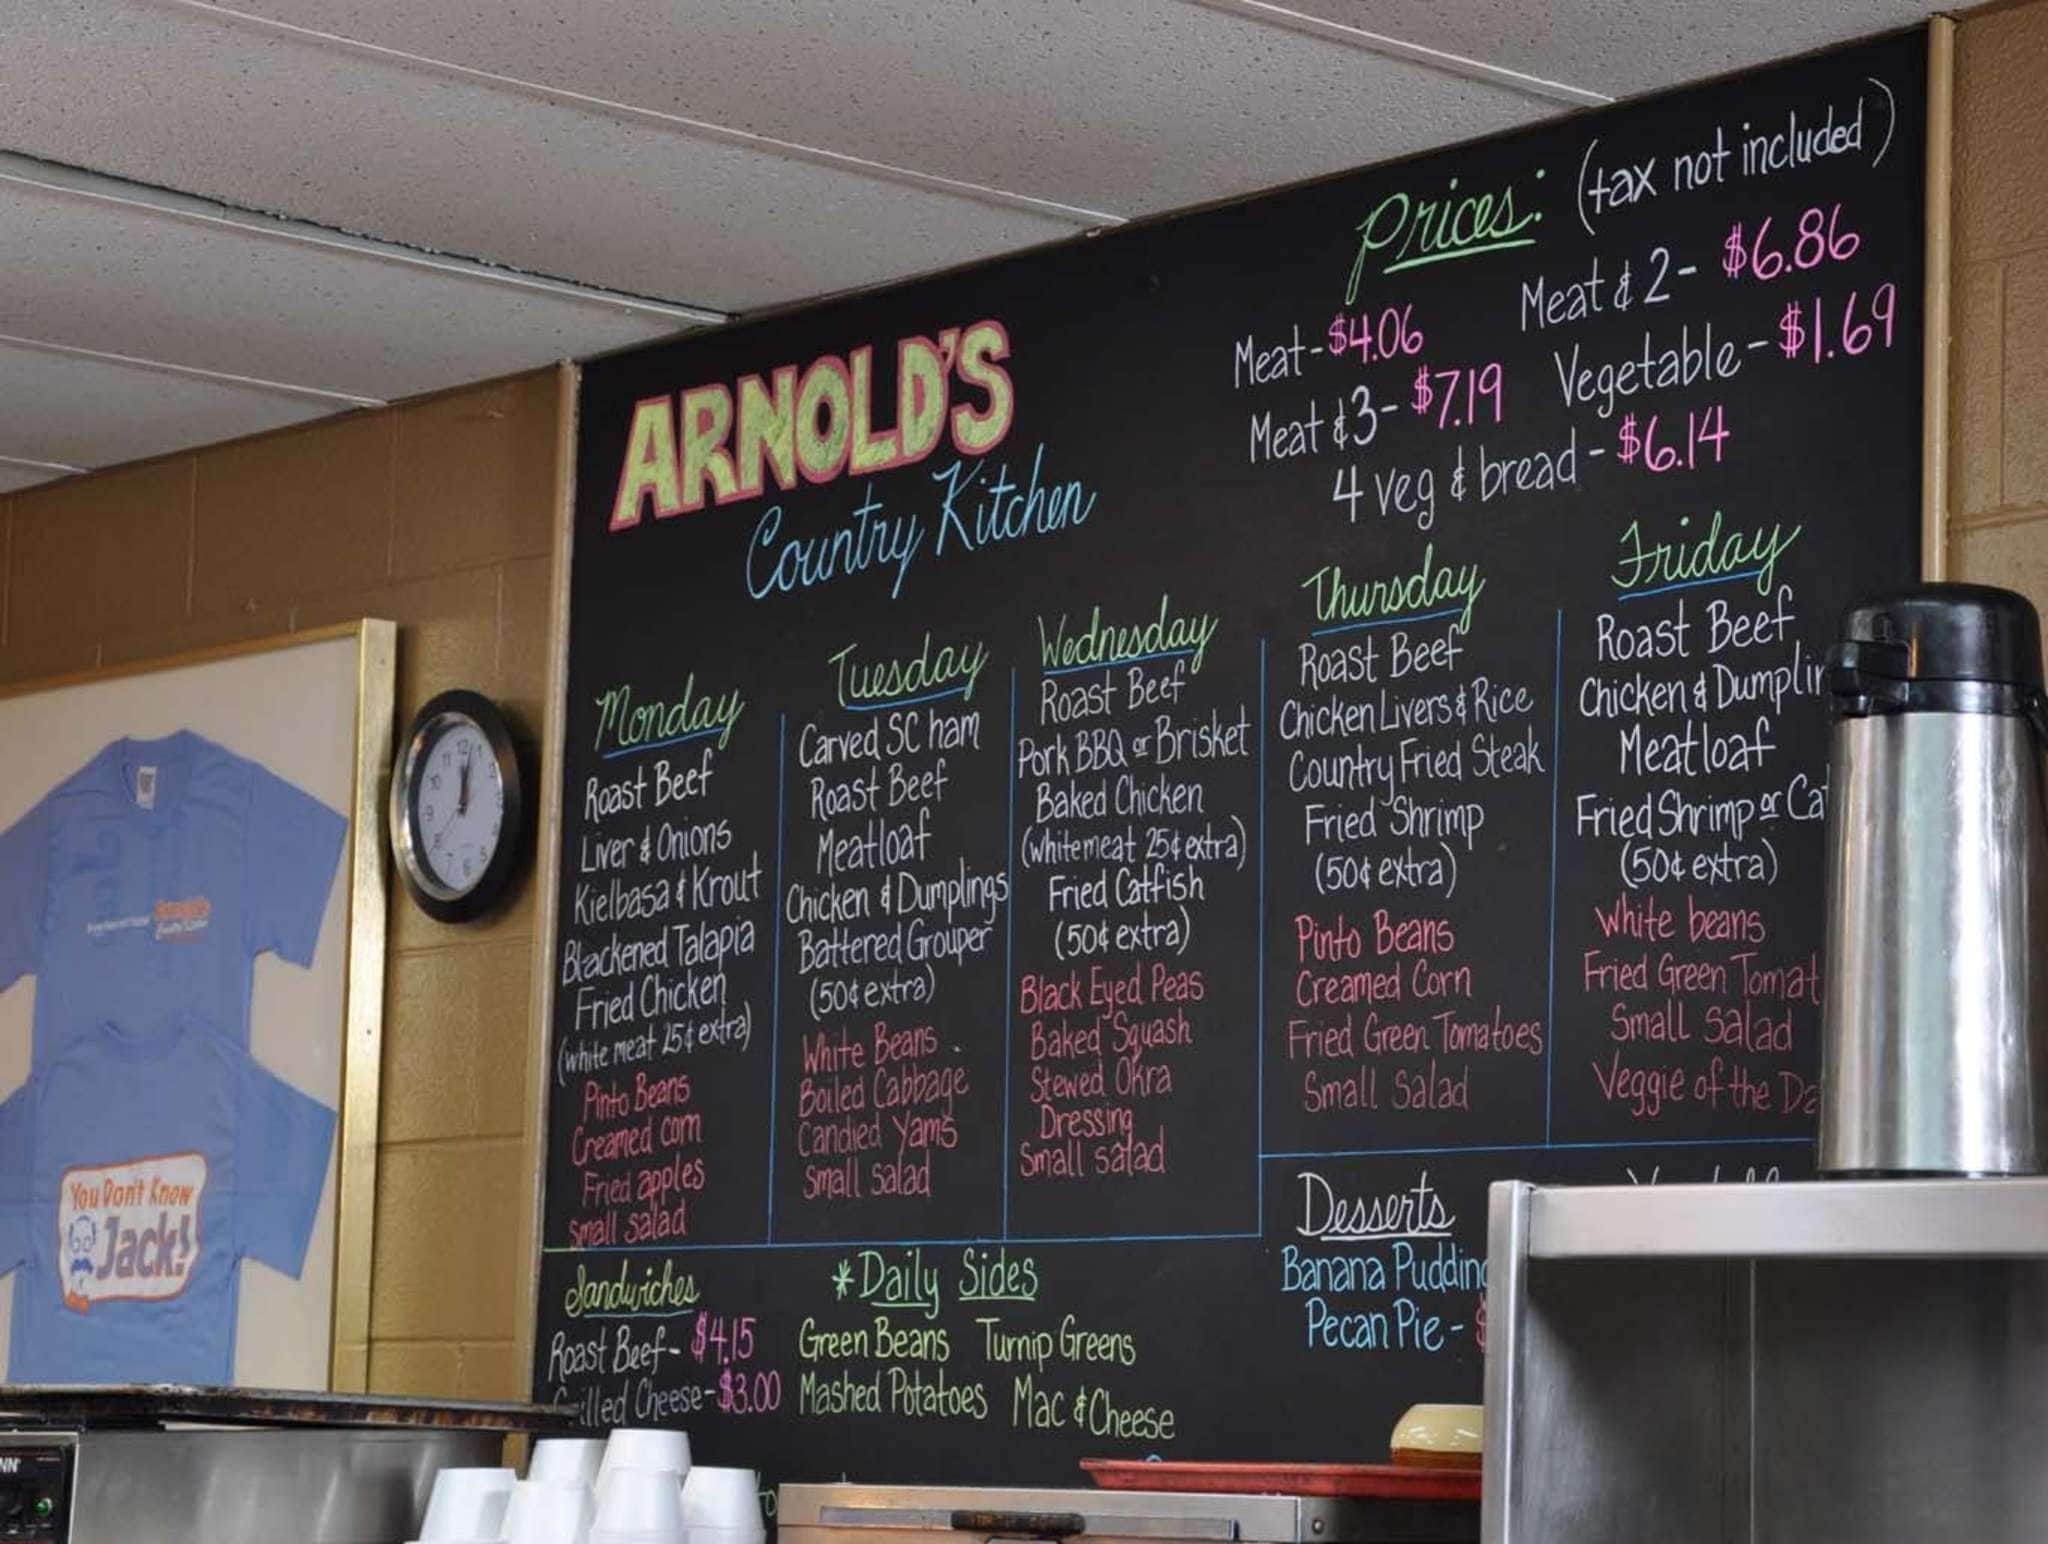 Prices: (tax not included)
Meat - $4.06
Meat & 2 - $6.86
Meat & 3 - $7.19
Vegetable - $1.69
4 veg & bread - $6.14
ARNOLD'S
Country Kitchen
Monday
Roast Beef
Liver & Onions
Kielbasa & Krout
Blackened Talapia
Fried Chicken
(white meat 25¢ extra)
Pinto Beans
Creamed corn
Fried apples
Small salad
Tuesday
Carved SC ham
Roast Beef
Meatloaf
Chicken & Dumplings
Battered Grouper
(50¢ extra)
White Beans
Boiled Cabbage
Candied Yams
Small salad
Wednesday
Roast Beef
Pork BBQ or Brisket
Baked Chicken
(whitemeat 25¢ extra)
Fried Catfish
(50¢ extra)
Black Eyed Peas
Baked Squash
Stewed Okra
Dressing
Small salad
Thursday
Roast Beef
Chicken Livers & Rice
Country Fried Steak
Fried Shrimp
(50¢ extra)
Pinto Beans
Creamed Corn
Fried Green Tomatoes
Small Salad
Friday
Roast Beef
Chicken & Dumplin
Meatloaf
Fried Shrimp or Cat
(50¢ extra)
White beans
Fried Green Tomat
Small Salad
Veggie of the Da
Sandwiches
Roast Beef - $4.15
Grilled Cheese - $3.00
*Daily Sides
Green Beans Turnip Greens
Mashed Potatoes Mac & Cheese
Desserts
Banana Pudding
Pecan Pie - $
12 1 2 3 4 5 6 7 8 9 10 11
You Don't Know
Jack!
NN